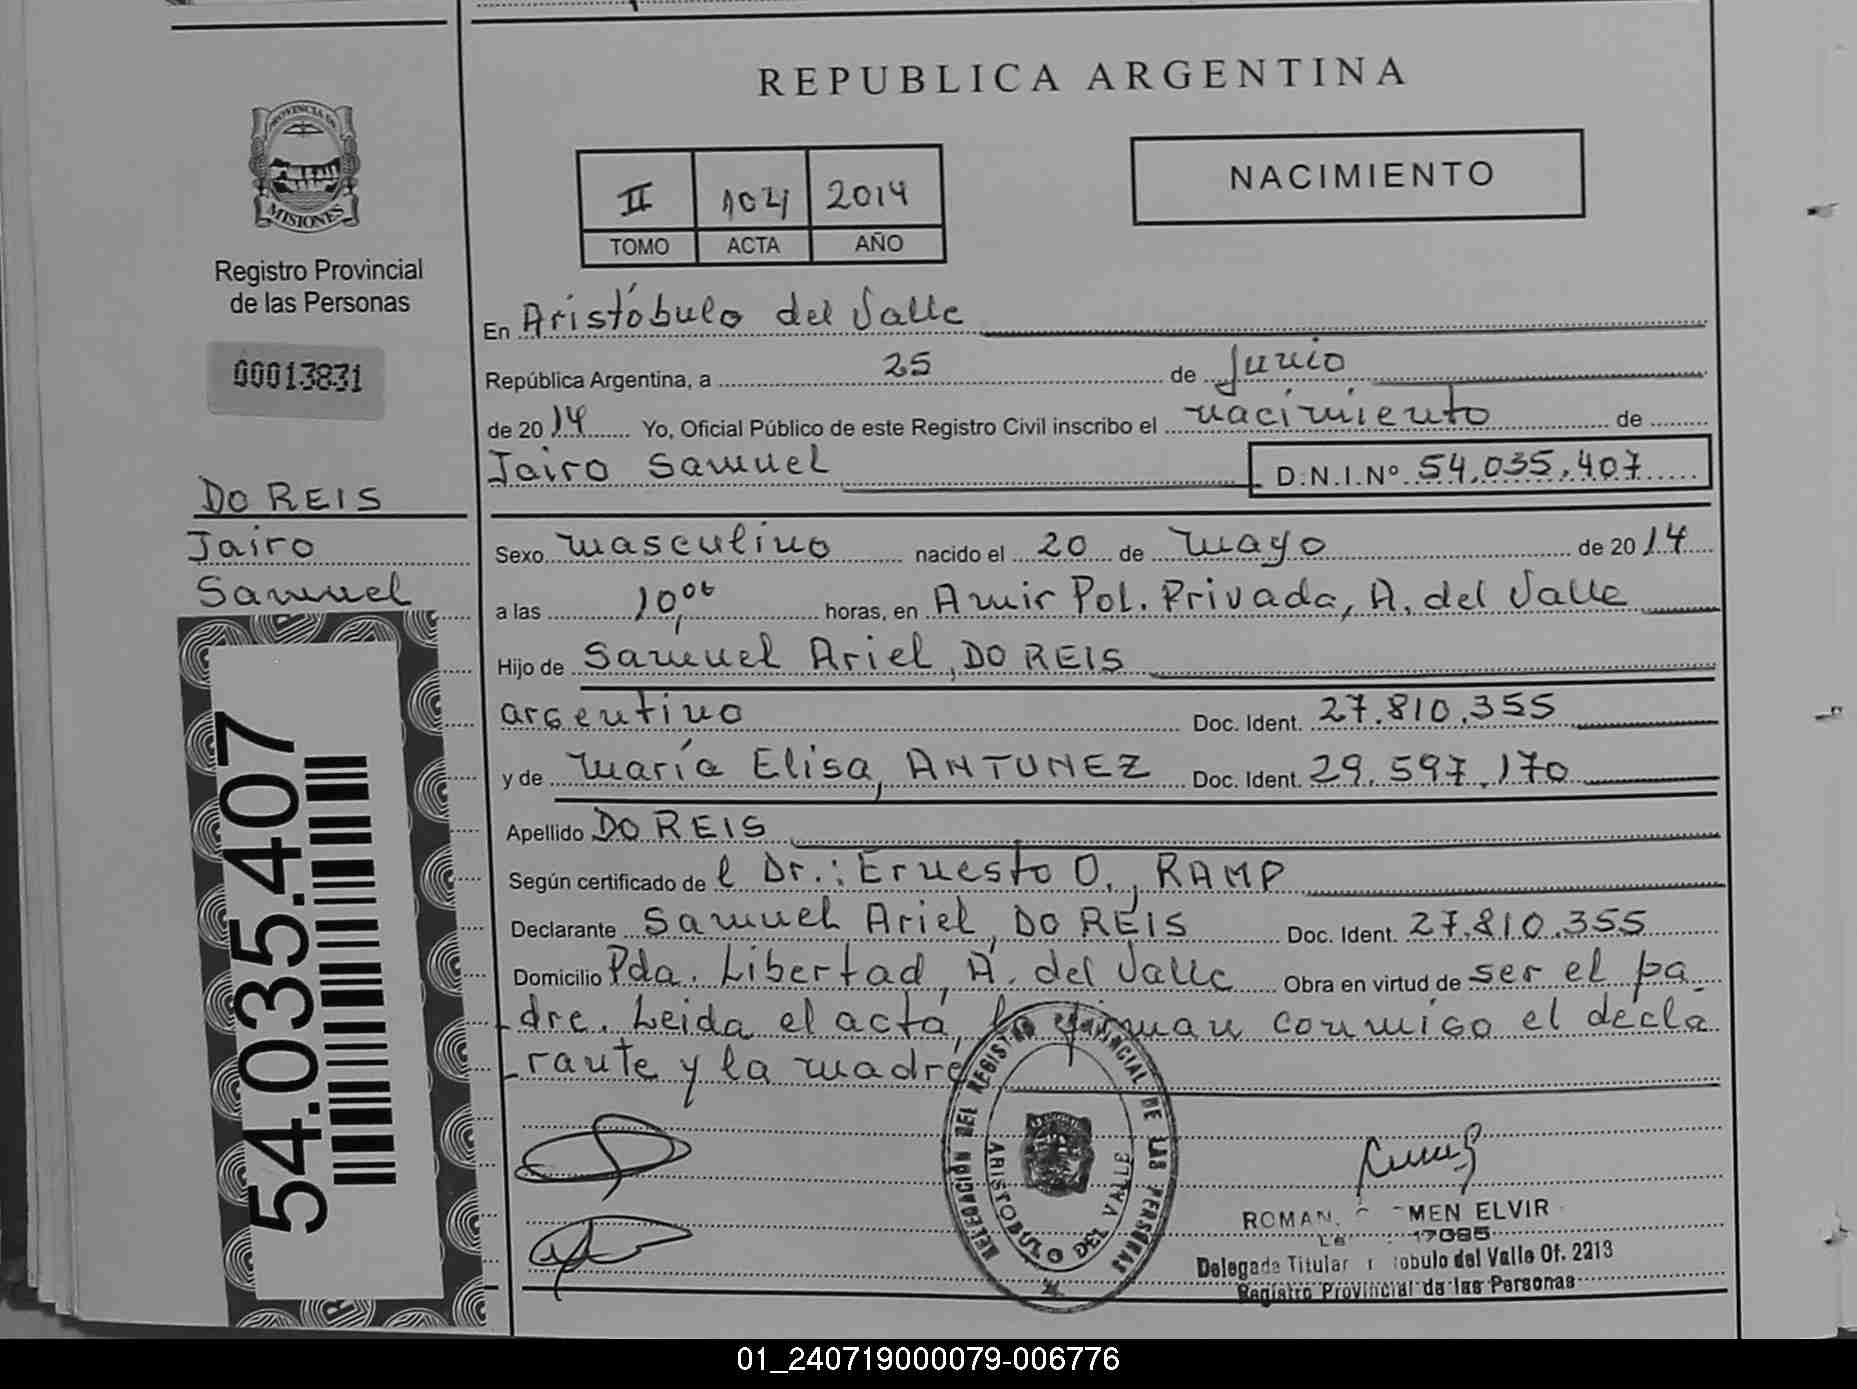 REPUBLICA ARGENTINA
PROVINCIA DE
MISIONES
Registro Provincial
de las Personas
00013831
II 104 2014
TOMO ACTA AÑO
NACIMIENTO
DO REIS
Jairo
Samuel
54.035.407
En Aristóbulo del Valle
República Argentina, a 25 de Junio
de 2014 Yo, Oficial Público de este Registro Civil inscribo el nacimiento de
Jairo Samuel D.N.I.Nº 54.035.407
Sexo masculino nacido el 20 de mayo de 2014
a las 10,00 horas, en Amir Pol. Privada, A. del Valle
Hijo de Samuel Ariel, DO REIS
argentino Doc. Ident. 27.810.355
y de María Elisa, ANTUNEZ Doc. Ident. 29.597.170
Apellido DO REIS
Según certificado de l Dr.: Ernesto O., RAMP
Declarante Samuel Ariel, DO REIS Doc. Ident. 27.810.355
Domicilio Pda. Libertad, A. del Valle Obra en virtud de ser el pa
dre. Leida el acta la firman conmigo el decla
rante y la madre
DELEGACIÓN DEL REGISTRO PROVINCIAL DE LAS PERSONAS
ARISTOBULO DEL VALLE
ROMAN, MEN ELVIR
17095
Delegada Titular tobulo del Valle Of. 2213
Registro Provincial de las Personas
01_240719000079-006776